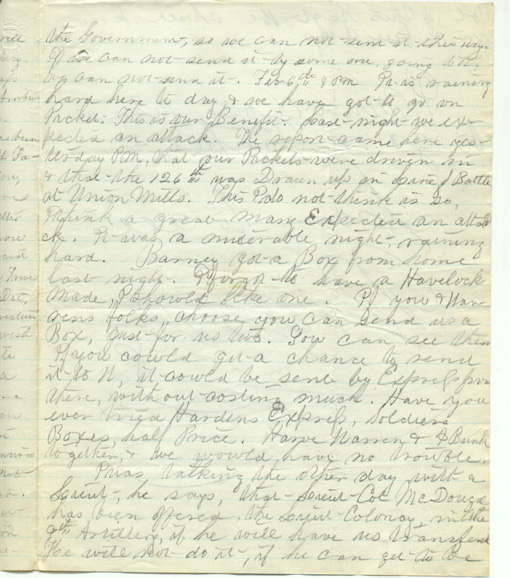 the Government, so we can not send it this way.
If we can not send it by some one, going to N,
we can not send it. Feb 6th 8 PM. It is raining
hard here to day, & we have got to go on
Picket. This is our Benefit. Last night we ex-
pected an attack. The report came here yes-
terday P.M, that our Pickets were driven in
& that the 126th was Drawn up in Line of Battle
at Union Mills. This I do not think is so,
I think a great many Expected an atta
ck. It was a miserable night, raining
hard. Barney got a Box from home
last night. I forgot to have a Havelock
made, I should like one. If you & War-
rens folks, choose you can send us a
Box, just for us two. You can see them
If you could get a chance to send
it to N, it could be sent by Express from
there, without costing much. Have you
ever tried Hardens Express, Soldiers
Boxes, half Price. Have Warren & I Bunk
together, & we would have no trouble.
I was talking the other day with a
Lieut, he says, that Lieut Col. McDougal
has been offered the Lieut Coloncy, in the
9th Artillery, if he will have us transfered
He will not do it, if he can get to be